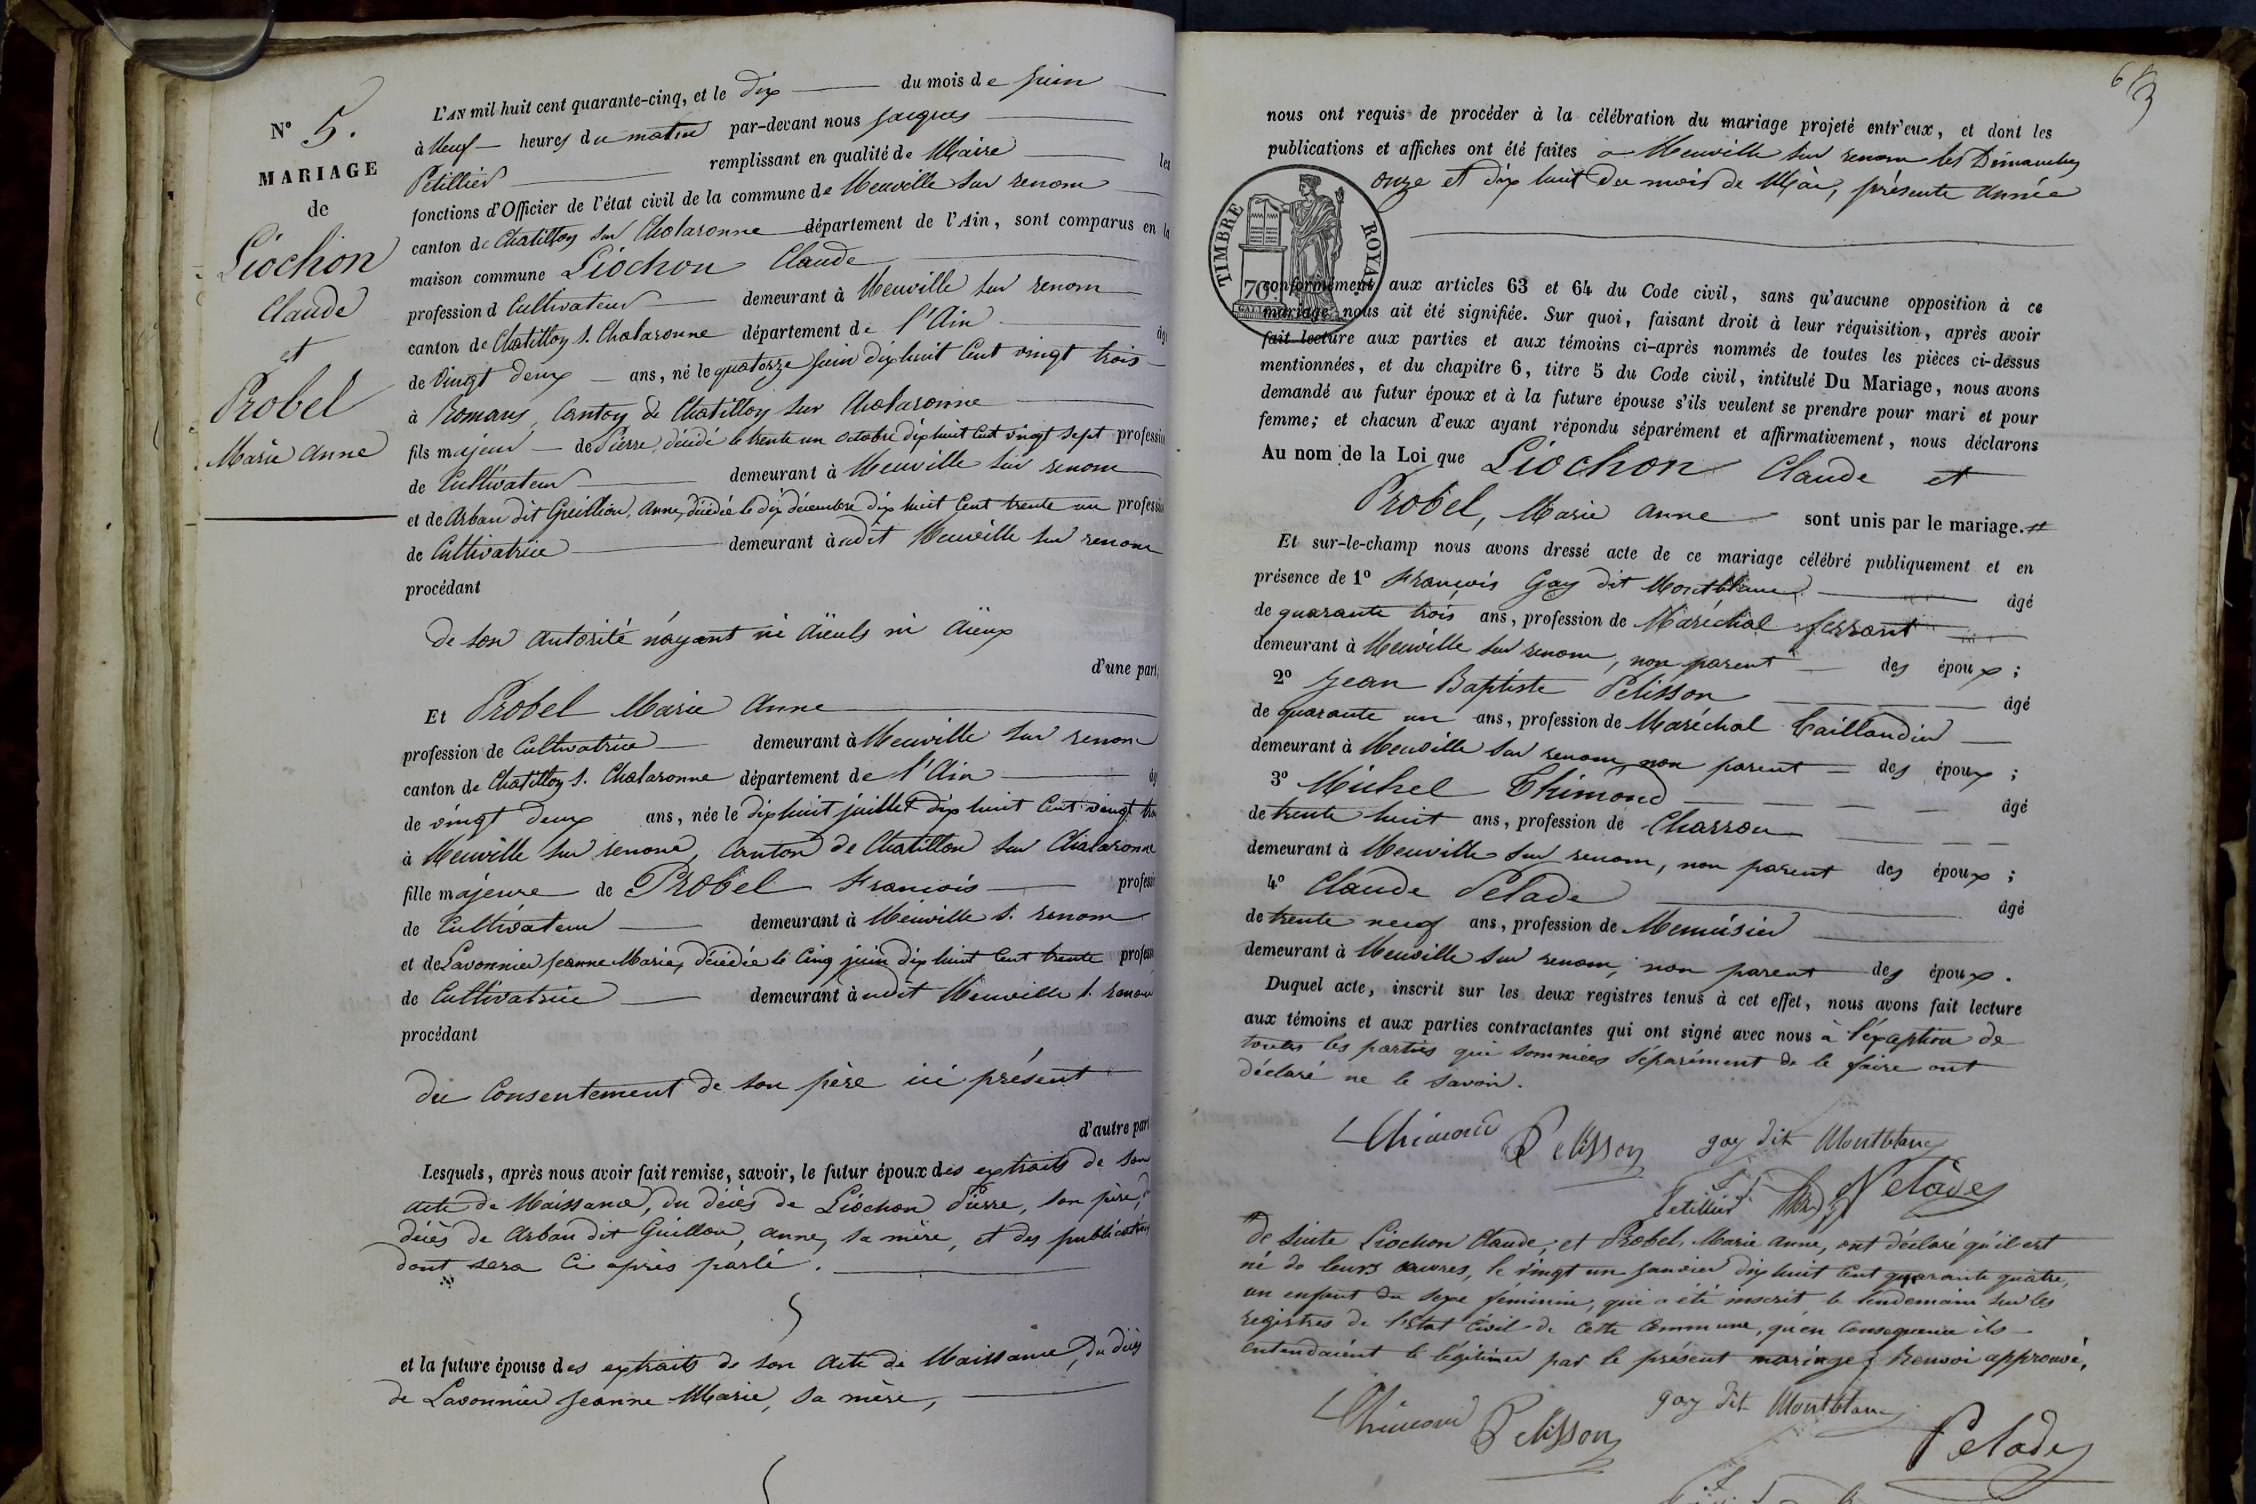 N° 5.
MARIAGE
de
Liochon
Claude
et
Probel
Marie Anne
L'AN mil huit cent quarante-cinq, et le dix du mois de juin
à Neuf heures du matin par-devant nous Jacques
Petillier remplissant en qualité de Maire les
fonctions d'Officier de l'état civil de la commune de Neuville sur renom
canton de Chatillon sur Chalaronne département de l'Ain, sont comparus en la
maison commune Liochon Claude
profession d Cultivateur demeurant à Neuville sur renom
canton de Chatillon s. Chalaronne département de l'Ain âgé
de vingt deux ans, né le quatorze juin dix huit cent vingt trois
à Romans, Canton de Chatillon sur Chalaronne
fils majeur de Pierre, décédé le trente un octobre dix huit cent vingt sept profession
de Cultivateur demeurant à Neuville sur renom
et de Arban dit Guillon, Anne, décédée le dix décembre dix huit cent trente un profession
de Cultivatrice demeurant à udit Neuville sur renom
procédant
de son autorité n'ayant ni aïeuls ni aïeux
d'une part,
Et Probel Marie Anne
profession de Cultivatrice demeurant à Neuville sur renom
canton de Chatillon s. Chalaronne département de l'Ain âg
de vingt deux ans, née le dix huit juillet dix huit cent vingt tro
à Neuville sur renome, Canton de Chatillon sur Chalaronne
fille majeure de Probel Francois professi
de Cultivateur demeurant à Neuville s. renom
et de Lavonnier Jeanne Marie, décédée le cinq juin dix huit cent trente profess
de Cultivatrice demeurant à udit Neuville s. renom
procédant
du consentement de son père ici présent
d'autre part
Lesquels, après nous avoir fait remise, savoir, le futur époux des extraits de son
acte de Naissance, du décès de Liochon Pierre, son père, du
décès de Arban dit Guillon, Anne, sa mère, et des publications
dont sera ci après parlé.
et la future épouse des extraits de son acte de Naissance, du décès
de Lavonnier Jeanne Marie, sa mère,
63
nous ont requis de procéder à la célébration du mariage projeté entr'eux, et dont les
publications et affiches ont été faites à Neuville sur renom les Dimanches
onze et dix huit du mois de Mai, présente année
TIMBRE ROYAL
70
conformément aux articles 63 et 64 du Code civil, sans qu'aucune opposition à ce
mariage nous ait été signifiée. Sur quoi, faisant droit à leur réquisition, après avoir
fait lecture aux parties et aux témoins ci-après nommés de toutes les pièces ci-dessus
mentionnées, et du chapitre 6, titre 5 du Code civil, intitulé Du Mariage, nous avons
demandé au futur époux et à la future épouse s'ils veulent se prendre pour mari et pour
femme; et chacun d'eux ayant répondu séparément et affirmativement, nous déclarons
Au nom de la Loi que Liochon Claude et
Probel, Marie Anne sont unis par le mariage. #
Et sur-le-champ nous avons dressé acte de ce mariage célébré publiquement et en
présence de 1° François Gay dit Montblanc âgé
de quarante trois ans, profession de Maréchal ferrant
demeurant à Neuville sur renom, non parent des époux;
2° Jean Baptiste Pelisson âgé
de quarante un ans, profession de Maréchal Taillandier
demeurant à Neuville sur renom, non parent des époux;
3° Michel Thimond âgé
de trente huit ans, profession de Charron
demeurant à Neuville sur renom, non parent des époux;
4° Claude Pelade âgé
de trente neuf ans, profession de Menuisier
demeurant à Neuville sur renom, non parent des époux.
Duquel acte, inscrit sur les deux registres tenus à cet effet, nous avons fait lecture
aux témoins et aux parties contractantes qui ont signé avec nous à l'éxception de
toutes les parties qui sommées séparément de le faire ont
déclaré ne le savoir.
Thimond Pelisson gay dit Montblanc
Petillier Pelade
# de suite Liochon Claude, et Probel, Marie Anne, ont déclaré qu'il est
né de leurs œuvres, le vingt un janvier dix huit cent quarante quatre,
un enfant du sexe féminin, qui a été inscrit le lendemain sur les
registres de l'Etat Civil de cette Commune, qu'en consequence ils
entendaient le légitimer par le présent mariage. Renvoi approuvé.
Thimond Pelisson gay dit Montblanc Pelade